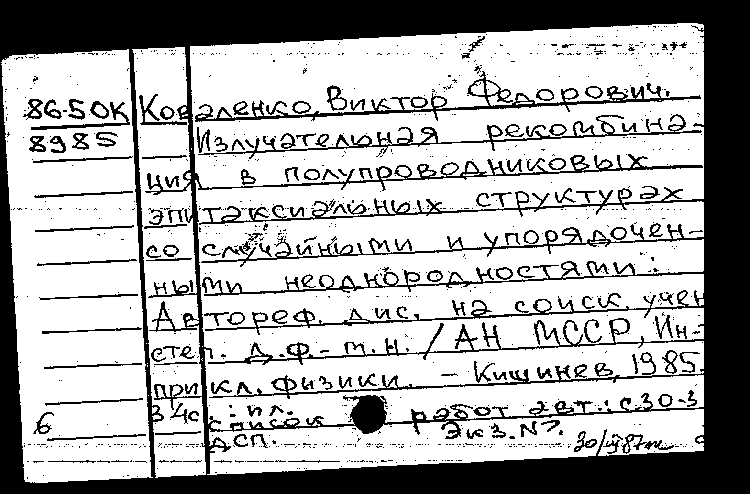 86-5 ОК Коваленко, Виктор Федорович.
8985 Излучательная рекомбина-
ция в полупроводниковых
эпитаксиальных структурах
со случайными и упорядочен-
ными неоднородностями:
Автореф. дис. на соиск. учен
степ. д.ф.-м.н. / АН МССР, Ин-т
прикл. физики. - Кишинев, 1985.
34с.: ил.
6 список работ авт.: с.30-3
ДСП. Экз. №7.